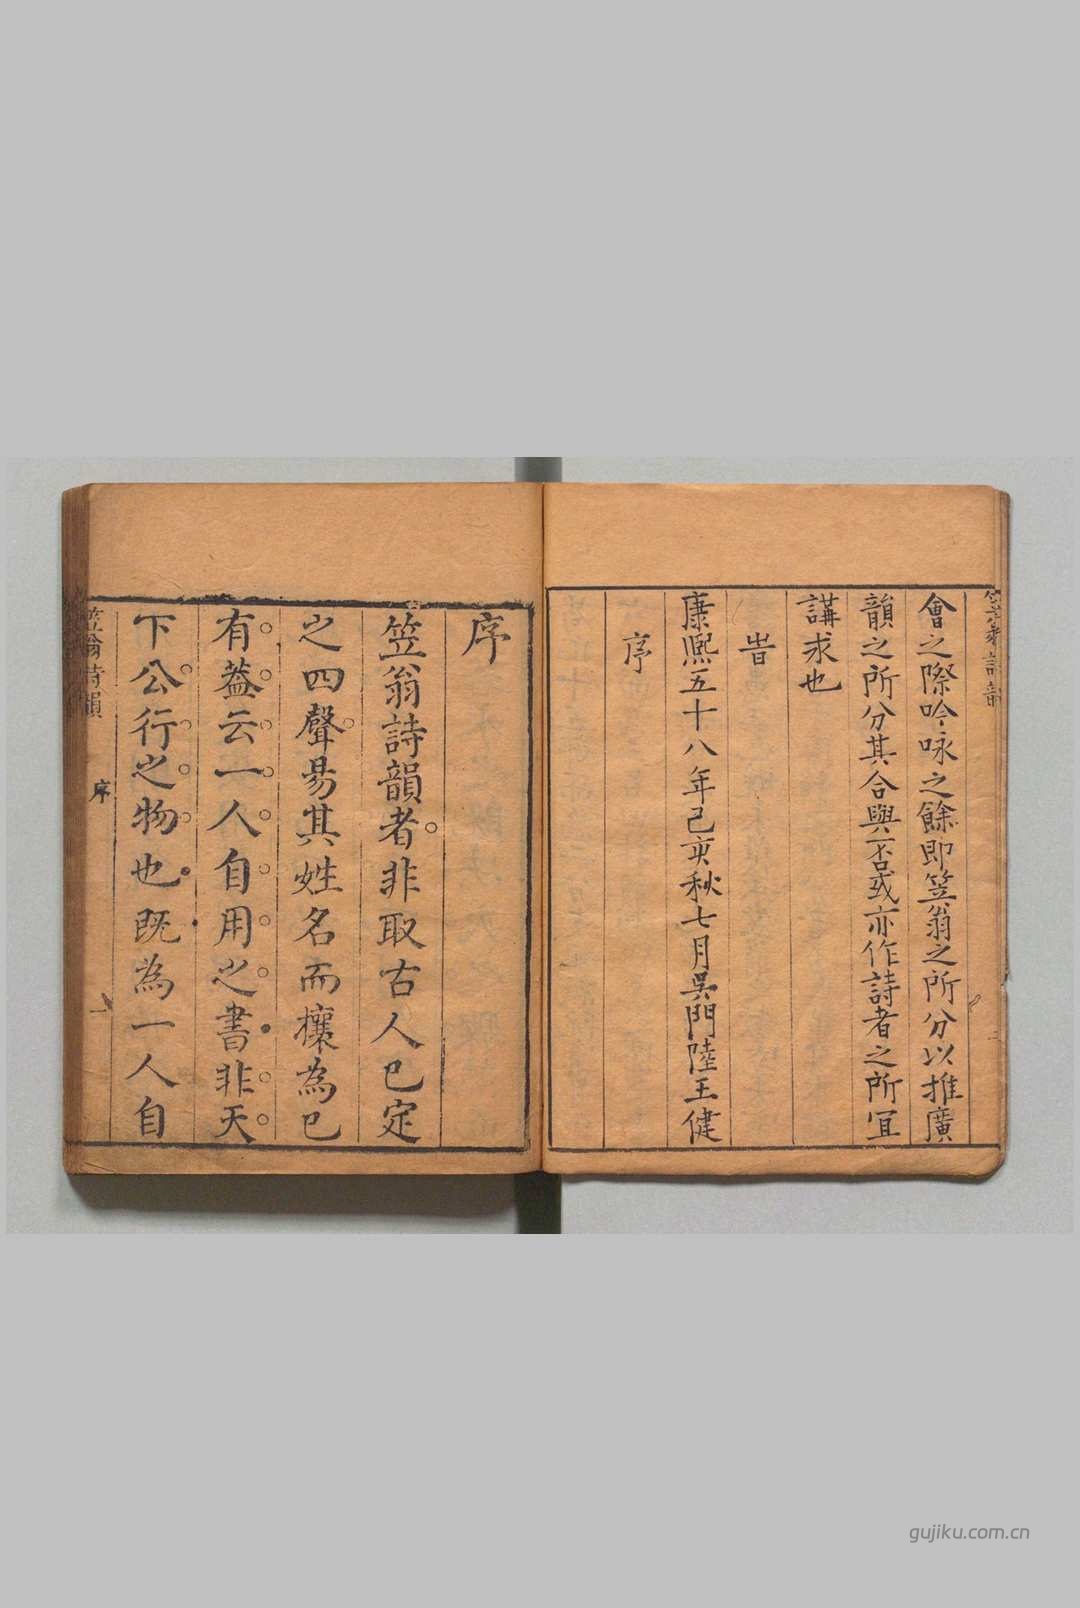 會之際吟咏之餘即笠翁之所分以推廣
韻之所分其合與否或亦作詩者之所宜
講求也
旹
康熙五十八年己亥秋七月吳門陸王健
序
序
笠翁詩韻者非取古人已定
之四聲易其姓名而攘為已
有葢云一人自用之書非天
下公行之物也既為一人自
笠翁詩韻
序
一
gujiku.com.cn